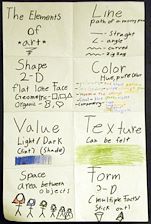 The Elements
of
*art*
Line
path of a moving point
- Straight
- angle
- curved
- zigzag
Shape
2-D
Flat lone Face
Geometric-
Organic-
Color
Hue, pure Other
Value
Light/Dark
(tint) (Shade)
Texture
Can be felt
Space
area between
objects
Form
3-D
(multiple Facts/
Stick out)